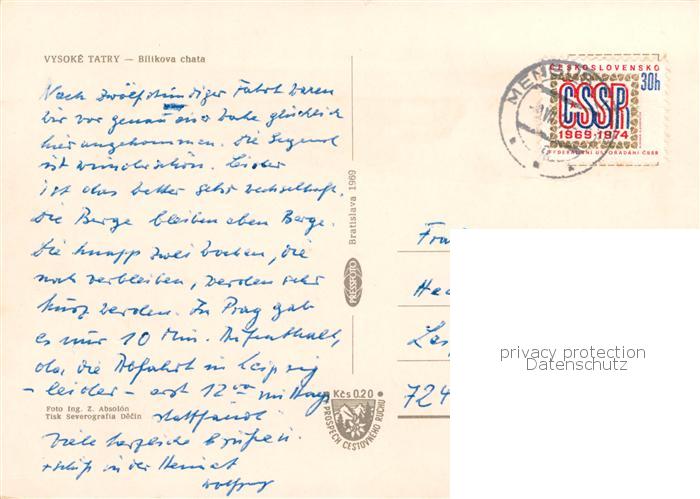 VYSOKÉ TATRY — Bílikova chata
Nach zwölfstündiger Fahrt waren
wir vor genau einer Woche glücklich
hier angekommen. Die Gegend
ist wunderschön. Leider
ist das Wetter sehr wechselhaft.
Die Berge bleiben eben Berge.
Die knapp zwei Wochen, die
noch verbleiben, werden sehr
kurz werden. In Prag gab
es nur 10 Min. Aufenthalt,
da die Abfahrt in Leipzig
- leider - erst 12⁰⁰ mittags
stattfand.
Viele herzliche Grüße in
die Heimat
Wolfgang
Foto Ing. Z. Absolón
Tisk Severografia Děčín
Bratislava 1969
PRESSFOTO
Kčs 0.20
PROSPĚCH CESTOVNÉHO RUCHU
MEN
ČESKOSLOVENSKO
30h
ČSSR
1969-1974
FEDERATIVNÍ USPOŘÁDÁNÍ ČSSR
Fra
He
724
privacy protection
Datenschutz